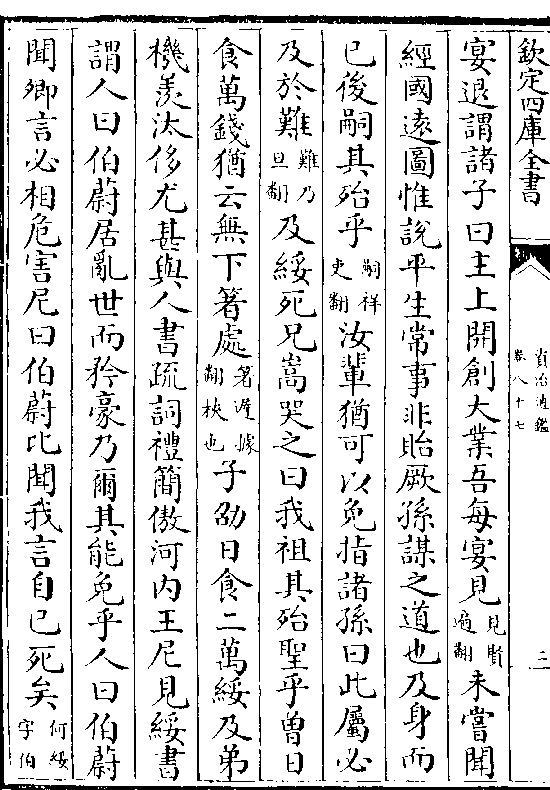 欽定四庫全書
資治通鑑
卷八十七
三
宴退謂諸子曰主上開創大業吾每宴見見賢遍翻未嘗聞
經國逺圖惟說平生常事非貽厥孫謀之道也及身而
已後嗣其殆乎嗣祥吏翻汝輩猶可以免指諸孫曰此屬必
及於難難乃旦翻及綏死兄嵩哭之曰我祖其殆聖乎曾日
食萬錢猶云無下箸處箸遲據翻梜也子劭日食二萬綏及弟
機羨汰侈尤甚與人書疏詞禮簡傲河内王尼見綏書
謂人曰伯蔚居亂世而矜豪乃爾其能免乎人曰伯蔚
聞卿言必相危害尼曰伯蔚比聞我言自已死矣何綏字伯